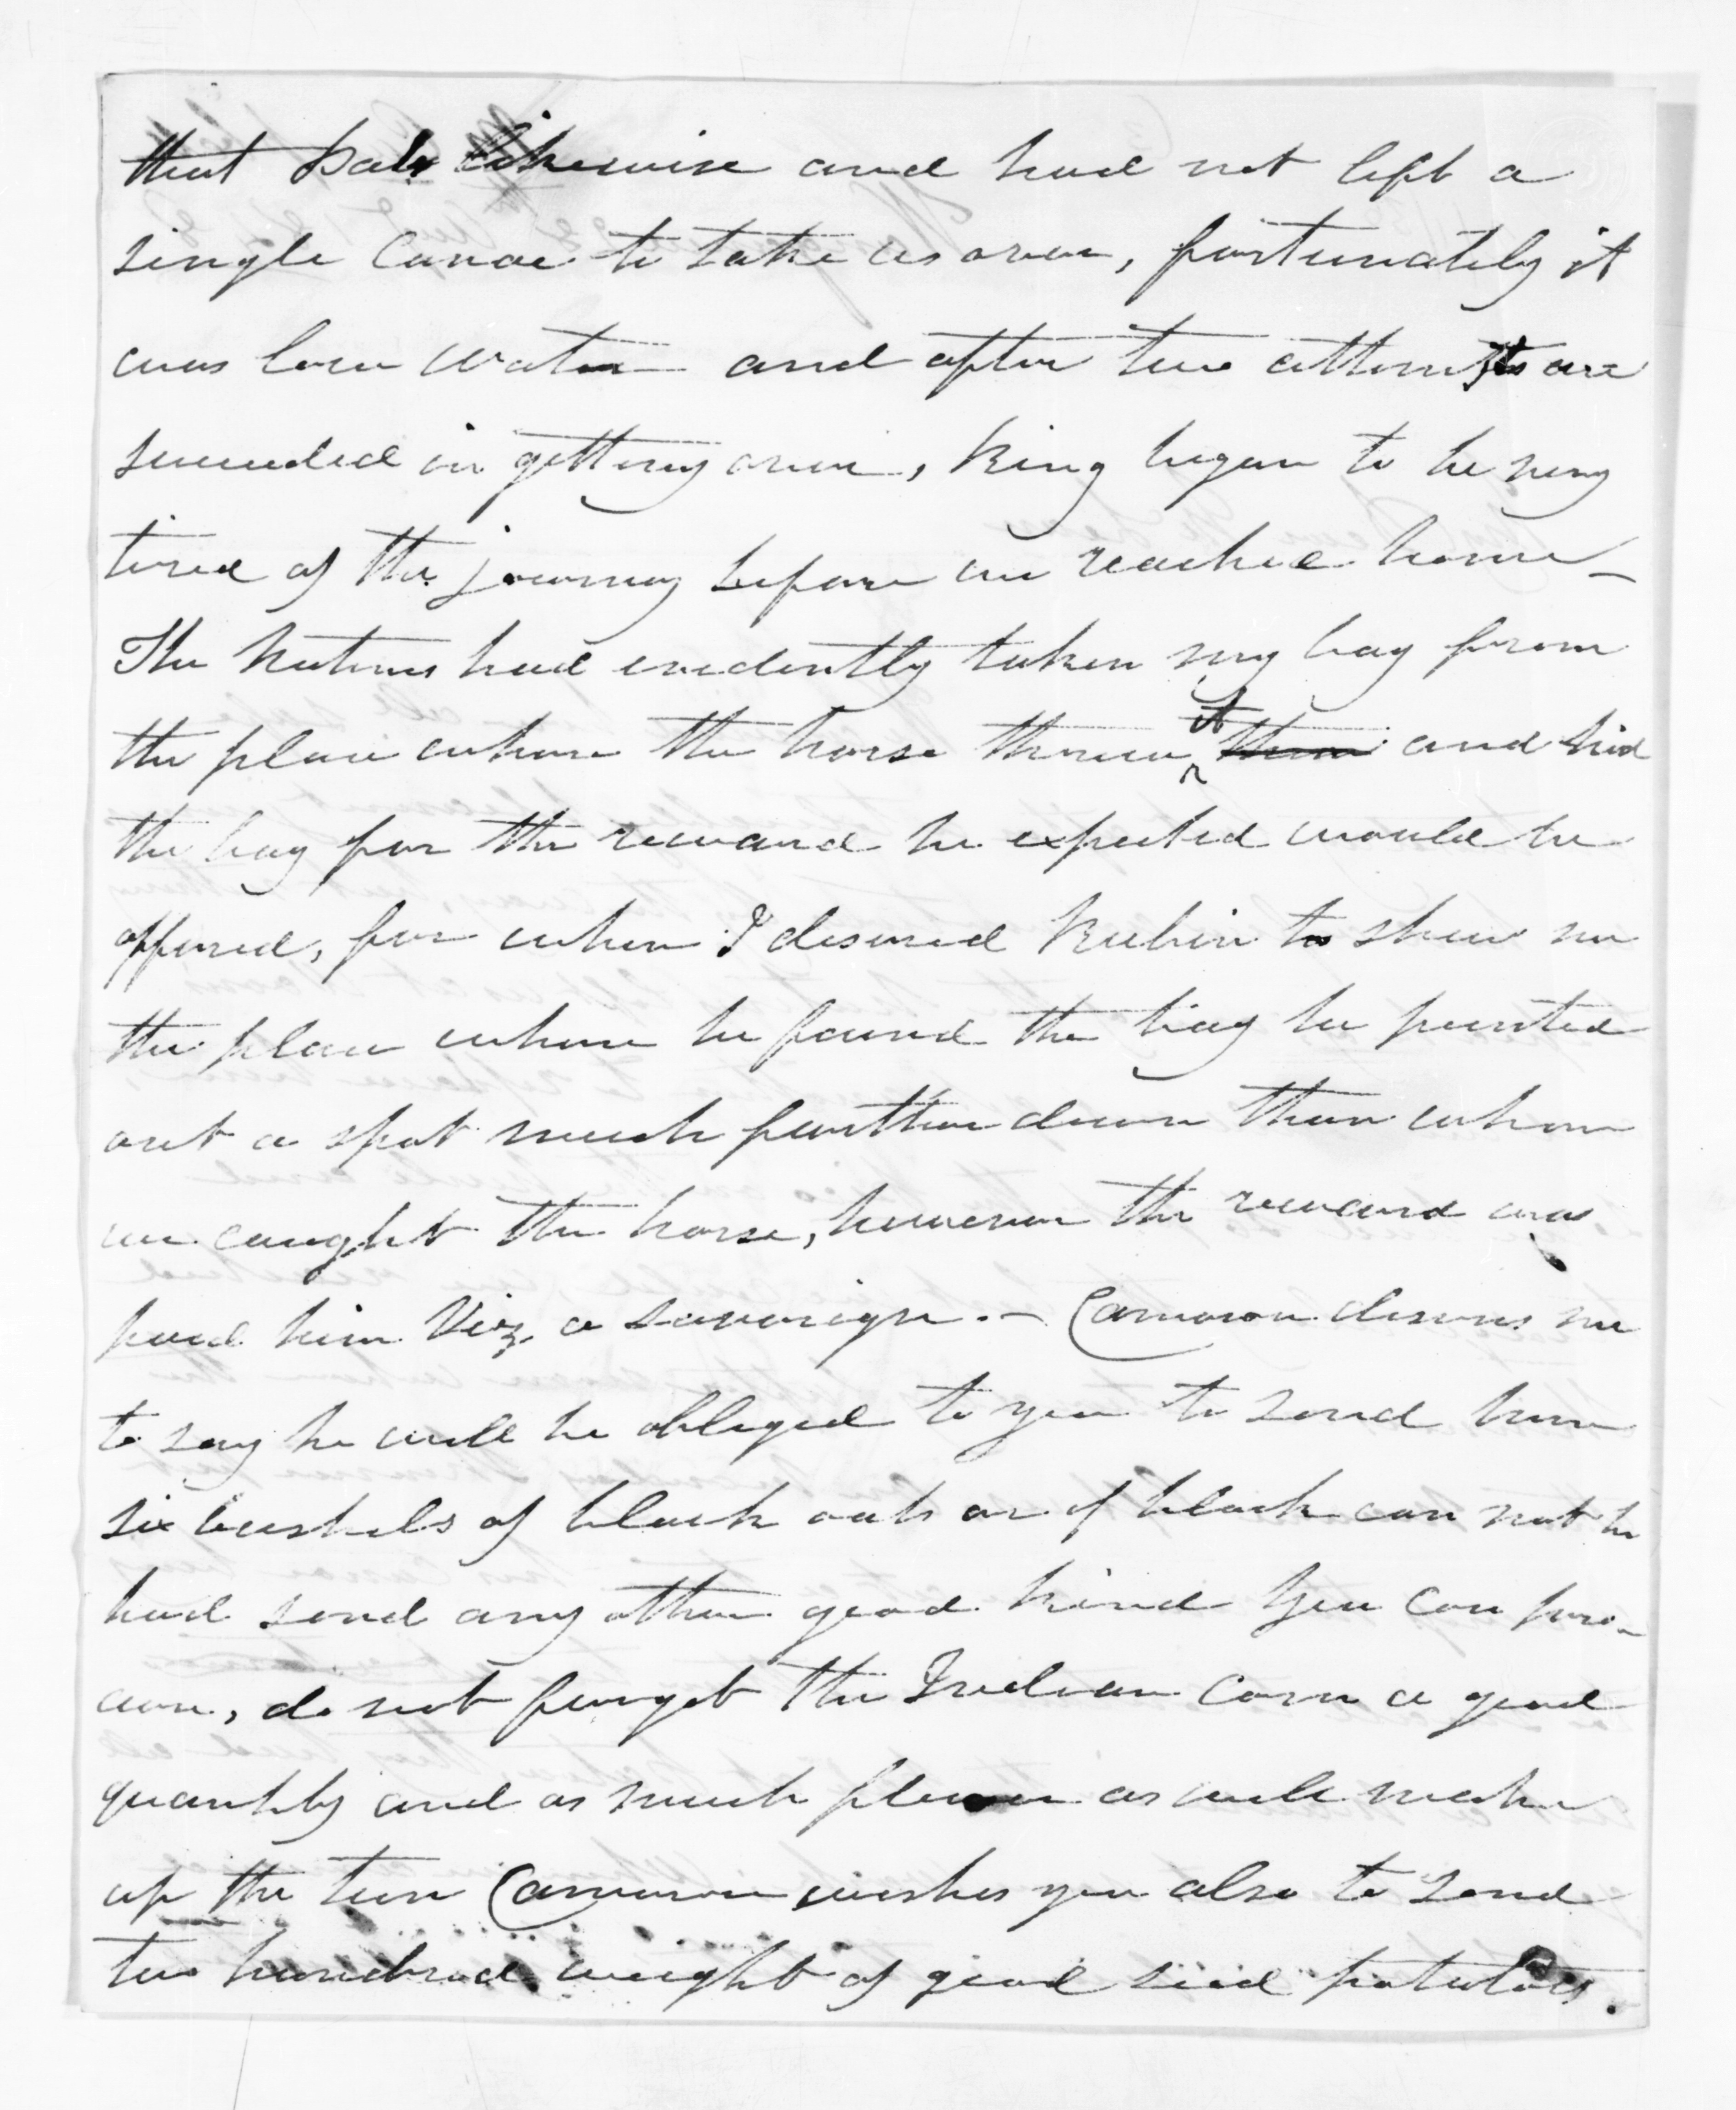 that Pah likewise and had not left a
single Canoe to take us over, fortunately it
was low water and after two attempts we
succeeded in getting over, King began to be very
tired of the journey before we reached home _
The Natives had evidently taken my bag from
the place where the horse threw it them and hid
the bag for the reward he expected would be
offered, for when I desired to shew me
the place where he found the bag he pointed
out a spot much further down than where
we caught the horse, however the reward was
paid him Viz. a sovereign. – Cameron desires me
to say he will be obliged to you to send him
six bushels of black oats or if black can not be
had send any other good kind you can pro-
cure, do not forget the Indian Corn a good
quantity and as much flour as will make
up the ton Cameron wishes you also to send
two hundred weight of good seed potatoes.